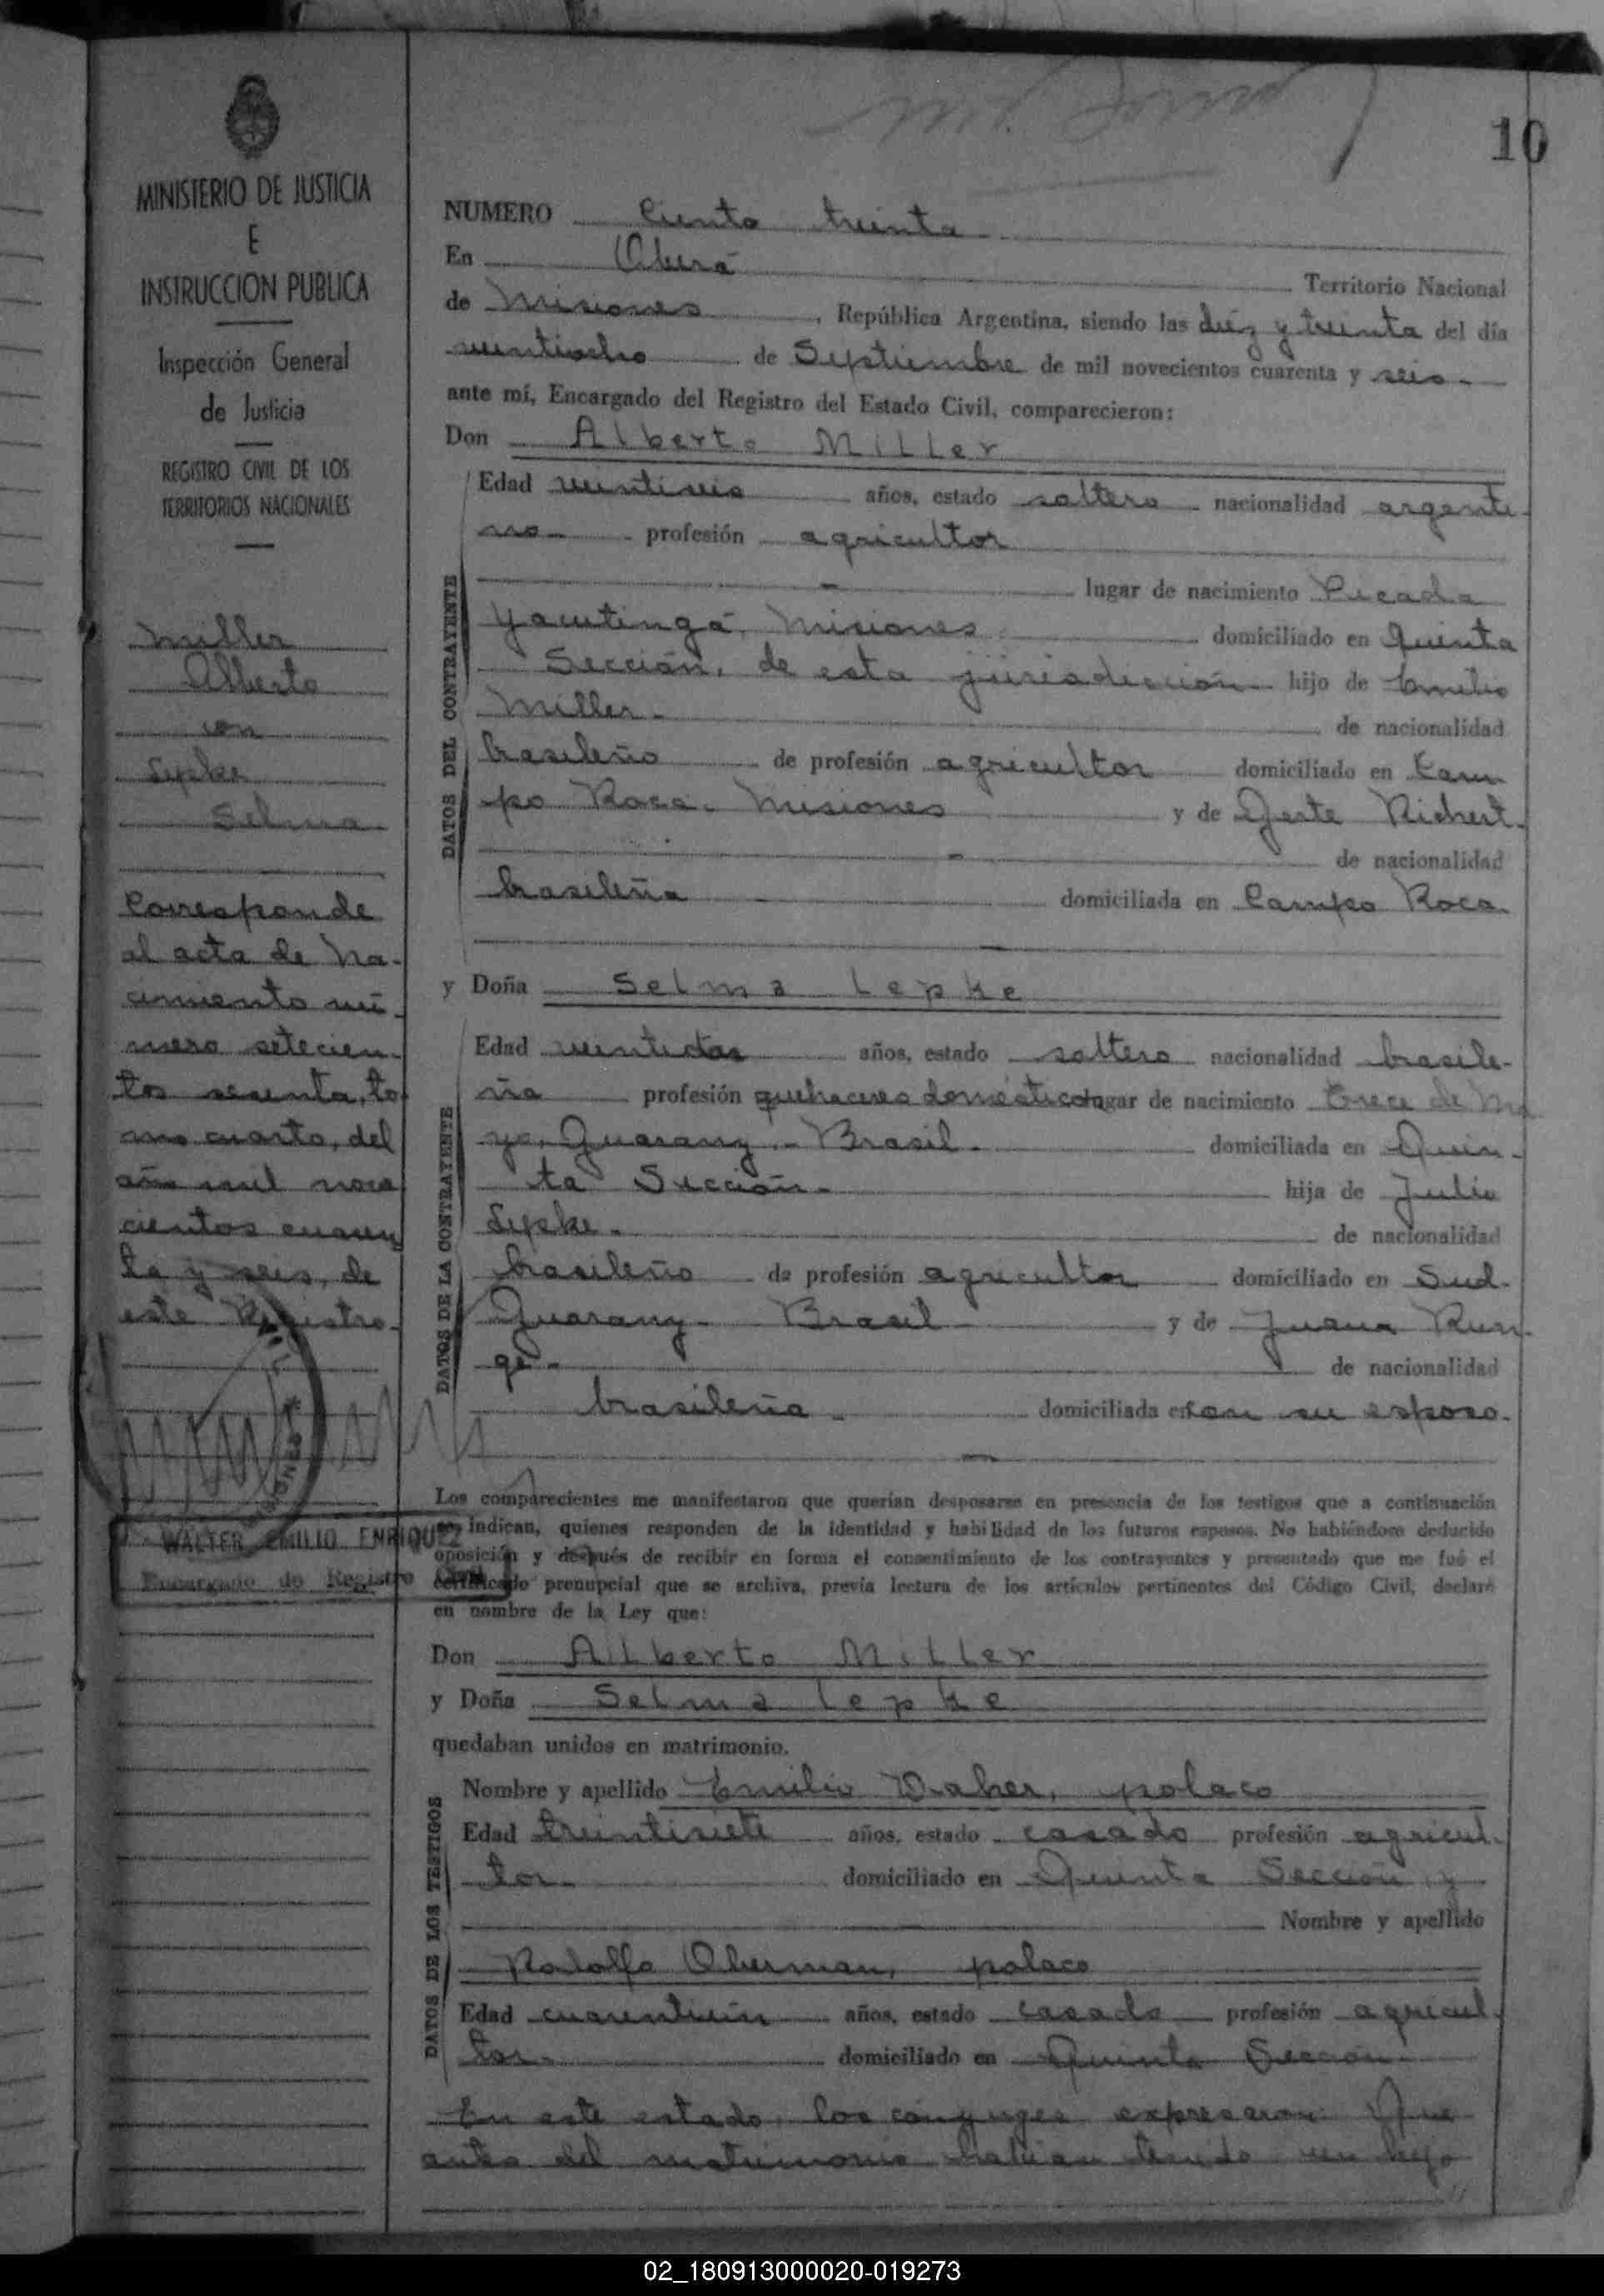 10
MINISTERIO DE JUSTICIA
E
INSTRUCCION PUBLICA
Inspección General
de Justicia
REGISTRO CIVIL DE LOS
TERRITORIOS NACIONALES
Miller
Alberto
con
Lepke
Selma
Corresponde
al acta de na-
cimiento nú-
mero setecien-
tos sesenta, to
mo cuarto, del
año mil nove
cientos cuaren
ta y seis, de
este Registro.
WALTER EMILIO ENRIQUEZ
Encargado de Registro Civil
NUMERO Ciento treinta
En Oberá Territorio Nacional
de Misiones, República Argentina, siendo las diéz y treinta del día
veintiocho de Septiembre de mil novecientos cuarenta y seis.-
ante mí, Encargado del Registro del Estado Civil, comparecieron:
Don Alberto Miller
DATOS DEL CONTRAYENTE
Edad veintiseis años, estado soltero nacionalidad argenti-
no- profesión agricultor
lugar de nacimiento Picada
Yacutinga, Misiones domiciliado en Quinta
Sección, de esta jurisdicción hijo de Emilio
Miller- de nacionalidad
brasileño de profesión agricultor domiciliado en Cam
po Roca- Misiones y de Richert-
de nacionalidad
brasileña domiciliada en Campo Roca
y Doña Selma Lepke
DATOS DE LA CONTRAYENTE
Edad veintidos años, estado soltera nacionalidad brasile-
ña profesión quehaceres domésticos lugar de nacimiento Trece de Ma
yo, Guarany,- Brasil- domiciliada en Quin-
ta Sección- hija de Julio
Lepke- de nacionalidad
brasileño de profesión agricultor domiciliado en Sud-
Guarany- Brasil y de Juana Run-
ge- de nacionalidad
brasileña- domiciliada en con su esposo.
Los comparecientes me manifestaron que querían desposarse en presencia de los testigos que a continuación
se indican, quienes responden de la identidad y habilidad de los futuros esposos. No habiéndose deducido
oposición y después de recibir en forma el consentimiento de los contrayentes y presentado que me fué el
certificado prenupcial que se archiva, previa lectura de los artículos pertinentes del Código Civil, declaré
en nombre de la Ley que:
Don Alberto Miller
y Doña Selma Lepke
quedaban unidos en matrimonio.
DATOS DE LOS TESTIGOS
Nombre y apellido Emilio Daher, polaco
Edad treintisiete años, estado casado profesión agricul-
tor- domiciliado en Quinta Sección y
Nombre y apellido
Rodolfo Oberman, polaco
Edad cuarentiún años, estado casado profesión agricul-
tor- domiciliado en Quinta Sección
En este estado, los cónyuges expresaron: Que
antes del matrimonio habían tenido un hijo
02_180913000020-019273